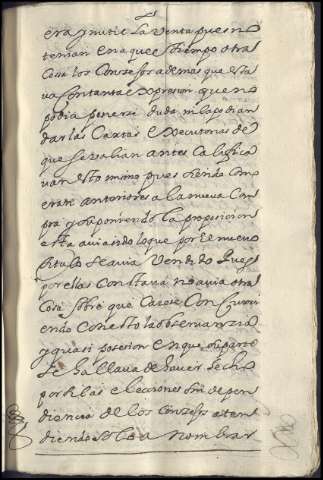 era ynutil La Venta pues no
tenian en aquel tiempo otra
Cosa los Consejos ademas que esta
va Contanta expresion que no
podia ponerse duda ni la podian
dar las Cartas executorias de
que se
van esto mismo pues siendo Con
anteriores a la nueva Com
pra y suponiendo la proposicion
esta avia sido lo que por El nuevo
titulo Se avia Vendido pues
por ellas Constava no avia otra
Cosa sobre que Caiese Concurri
endo Con esto la observanzia
y quasi posesion en que su parte
Se hallava de haver hecho
por si las elecciones sin depen
diencia de los Consejos aten
diendo solo a nombrar